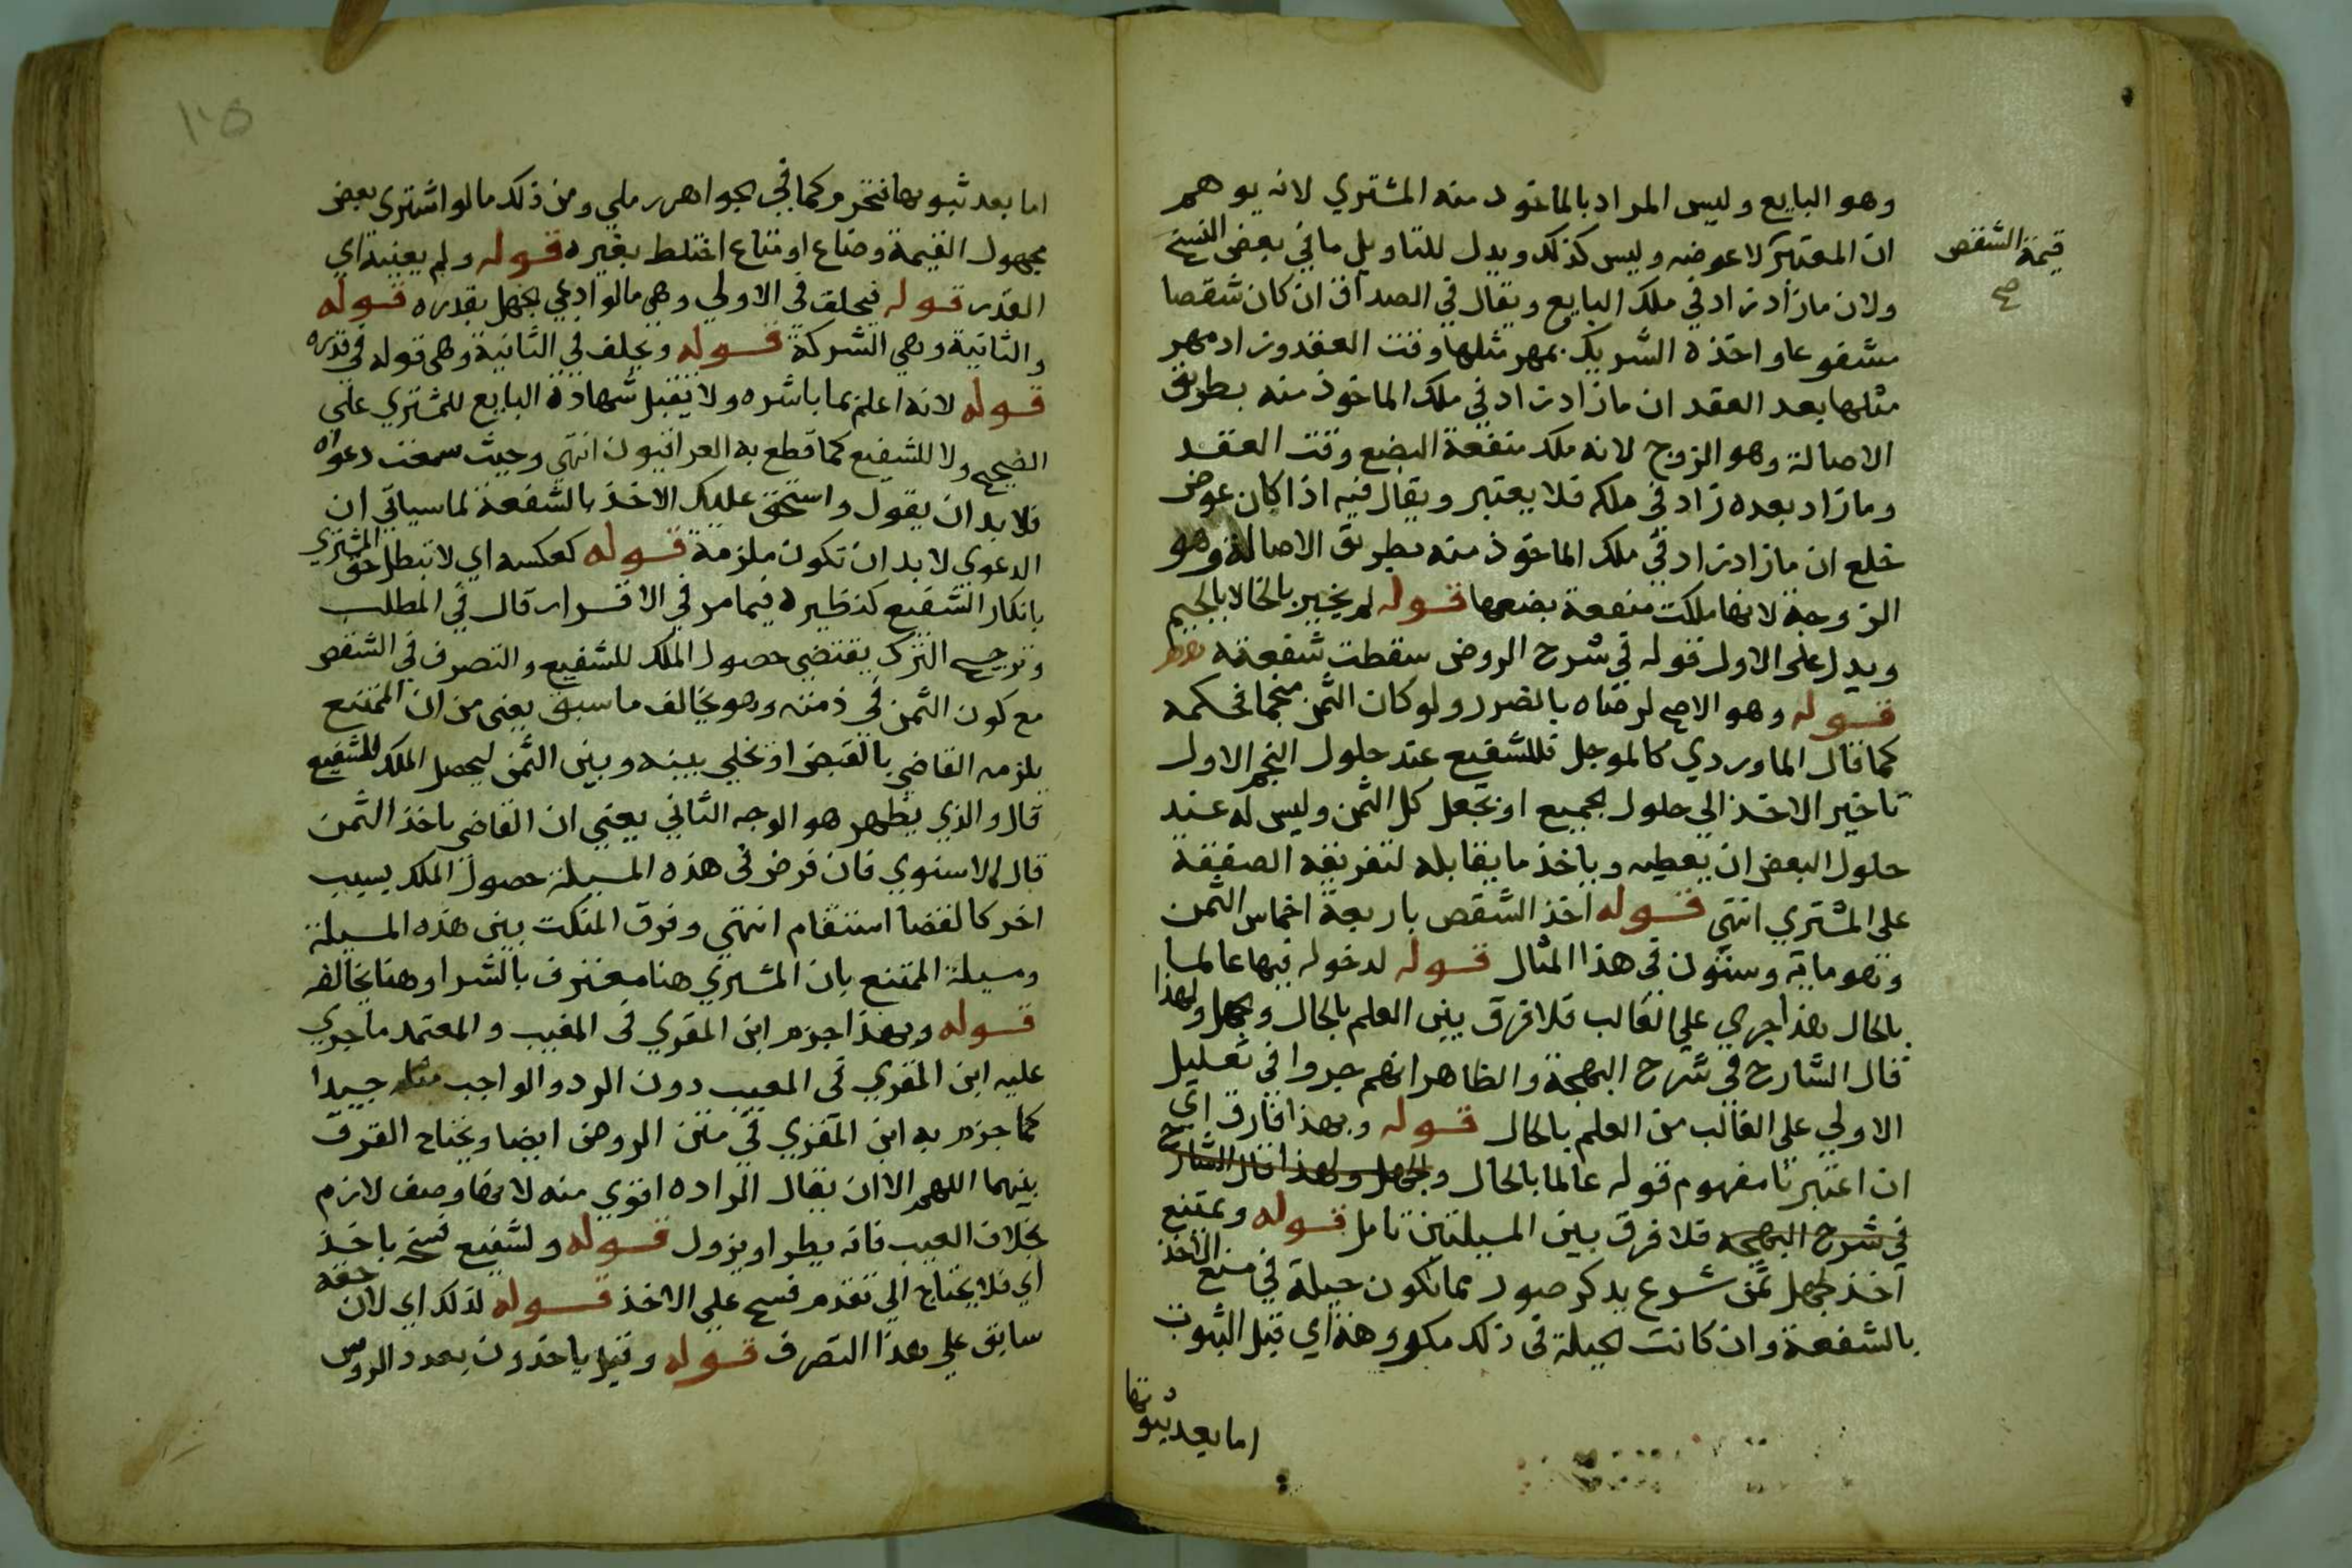 وهو البايع وليس المراد بالماخوذ منه المشتري لانه يوهم
ان المعتبر لا عوضه وليس كذلك ويدل للتاويل ما في بعض النسخ
قيمة الشقص
صح
ولان ما زاد زاد في ملك البايع ويقال في الصداق ان كان شقصا
مشفوعا واخذه الشريك بمهر مثلها وقت العقد وزاد مهر
مثلها بعد العقد ان ما زاد زاد في ملك الماخوذ منه بطريق
الاصالة وهو الزوج لانه ملك منفعة البضع وقت العقد
وما زاد بعده زاد في ملكه فلا يعتبر ويقال فيه اذا كان عوض
خلع ان ما زاد زاد في ملك الماخوذ منه بطريق الاصالة وهو
الزوجة لانها ملكت منفعة بضعها قوله لم يخير بالخا لا بالجيم
ويدل على الاول قوله في شرح الروض سقطت شفعته
قوله وهو الاصح لرضاه بالضرر ولو كان الثمن منجما فحكمه
كما قال الماوردي كالموجل فللشفيع عند حلول النجم الاول
تاخير الاخذ الي حلول الجميع او تعجل كل الثمن وليس له عند
حلول البعض ان يعطيه وياخذ ما يقابله لتفريقه الصفقة
على المشتري انتهي قوله اخذ الشقص باربعة اخماس الثمن
وهو ماية وستون في هذا المثال قوله لدخوله فيها عالما
بالحال هذا جري علي الغالب فلا فرق بين العلم بالحال والجهل ولهذا
قال الشارح في شرح البهجة والظاهر انهم جروا في تعليل
الاولي علي الغالب من العلم بالحال قوله وبهذا فارق اي
ان اعتبرنا مفهوم قوله عالما بالحال والجهل ولهذا قال الشارح
في شرح البهجة فلا فرق بين المسيلتين تامل قوله ويمتنع
اخذ لجهل ثمن شرع يذكر صور مما تكون حيلة في منع الاخذ
بالشفعة وان كانت الحيلة في ذلك مكروهة اي قبل الثبوت
اما بعد ثبوتها
١٠٥
اما بعد ثبوتها فتحرم كما في الجواهر رملي ومن ذلك ما لو اشتري بعض
مجهول القيمة وضاع او متاع اختلط بغيره قوله ولم يعينه اي
القدر قوله فيحلف في الاولي وهي ما لو ادعي بجهل بقدره قوله
والثانية وهي الشركة قوله ويحلف في الثانية وهي قوله في قدره
قوله لانه اعلم بما باشره ولا يقبل شهادة البايع للمشتري على
الصحيح ولا للشفيع كما قطع به العراقيون انتهي وحيث سمعت دعواه
فلا بد ان يقول واستحق عليك الاخذ بالشفعة لما سياتي ان
الدعوي لا بد ان تكون ملزمة قوله كعكسه اي لا تبطل حق المشتري
بانكار الشفيع كنظيره فيما مر في الاقرار قال في المطلب
وترجيح الترك يقتضي حصول الملك للشفيع والتصرف في الشقص
مع كون الثمن في ذمته وهو يخالف ما سبق يعني من ان الممتنع
يلزمه القاضي بالقبض او يخلي بينه وبين الثمن ليحصل الملك للشفيع
قال والذي يظهر هو الوجه الثاني يعني ان القاضي ياخذ الثمن
قال الاسنوي فان فرض في هذه المسيلة حصول الملك بسبب
اخر كالقضا استقام انتهي وفرق المنكت بين هذه المسيلة
ومسيلة الممتنع بان المشتري هنا معترف بالشرا وهنا يخالفه
قوله وبهذا جزم ابن المقري في المعيب والمعتمد ما جري
عليه ابن المقري في المعيب دون الرد والواجب مثله جيدا
كما جزم به ابن المقري في متن الروض ايضا ويحتاج الفرق
بينهما اللهم الا ان يقال الرداه اقوي منه لانها وصف لازم
بخلاف العيب فانه يطرا ويزول قوله ولشفيع فسخ باخذ
اي فلا يحتاج الي تقدم فسخ علي الاخذ قوله لذلك اي لان حقه
سابق علي هذا التصرف قوله وقيل ياخذون بعدد الروس